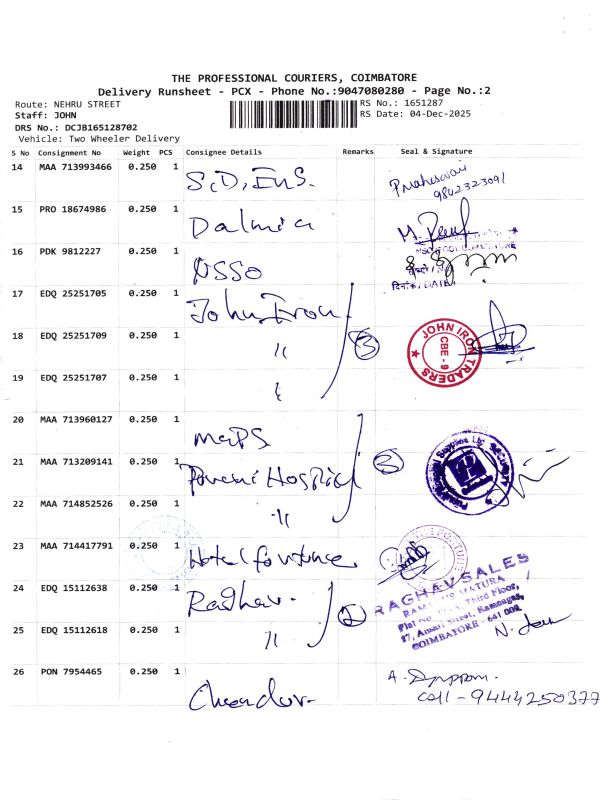 THE PROFESSIONAL COURIERS, COIMBATORE
Delivery Runsheet - PCX - Phone No.:9047080280 - Page No.:2
Route: NEHRU STREET
RS No.: 1651287
Staff: JOHN
RS Date: 04-Dec-2025
DRS No.: DCJB165128702
Vehicle: Two Wheeler Delivery
S No Consignment No Weight PCS Consignee Details Remarks Seal & Signature
14 MAA 713993466 0.250 1 S.D. Ens. P. Maheswari
9842323091
15 PRO 18674986 0.250 1 Dalmia M.
16 PDK 9812227 0.250 1 NSSO
दिनांक / DATE
17 EDQ 25251705 0.250 1 John Iron
18 EDQ 25251709 0.250 1 〃 3 JOHN IRON TRADERS CBE - 9
19 EDQ 25251707 0.250 1
20 MAA 713960127 0.250 1 maPS
21 MAA 713209141 0.250 1 Hospital 3 SECURITY
22 MAA 714852526 0.250 1 〃
23 MAA 714417791 0.250 1 Hotel fortune
24 EDQ 15112638 0.250 1 Raghav. 2 RAGHAV SALES
Third Floor,
Ramnagar,
25 EDQ 15112618 0.250 1 〃 COIMBATORE - 641 009
26 PON 7954465 0.250 1 A.
Cell - 9444250377